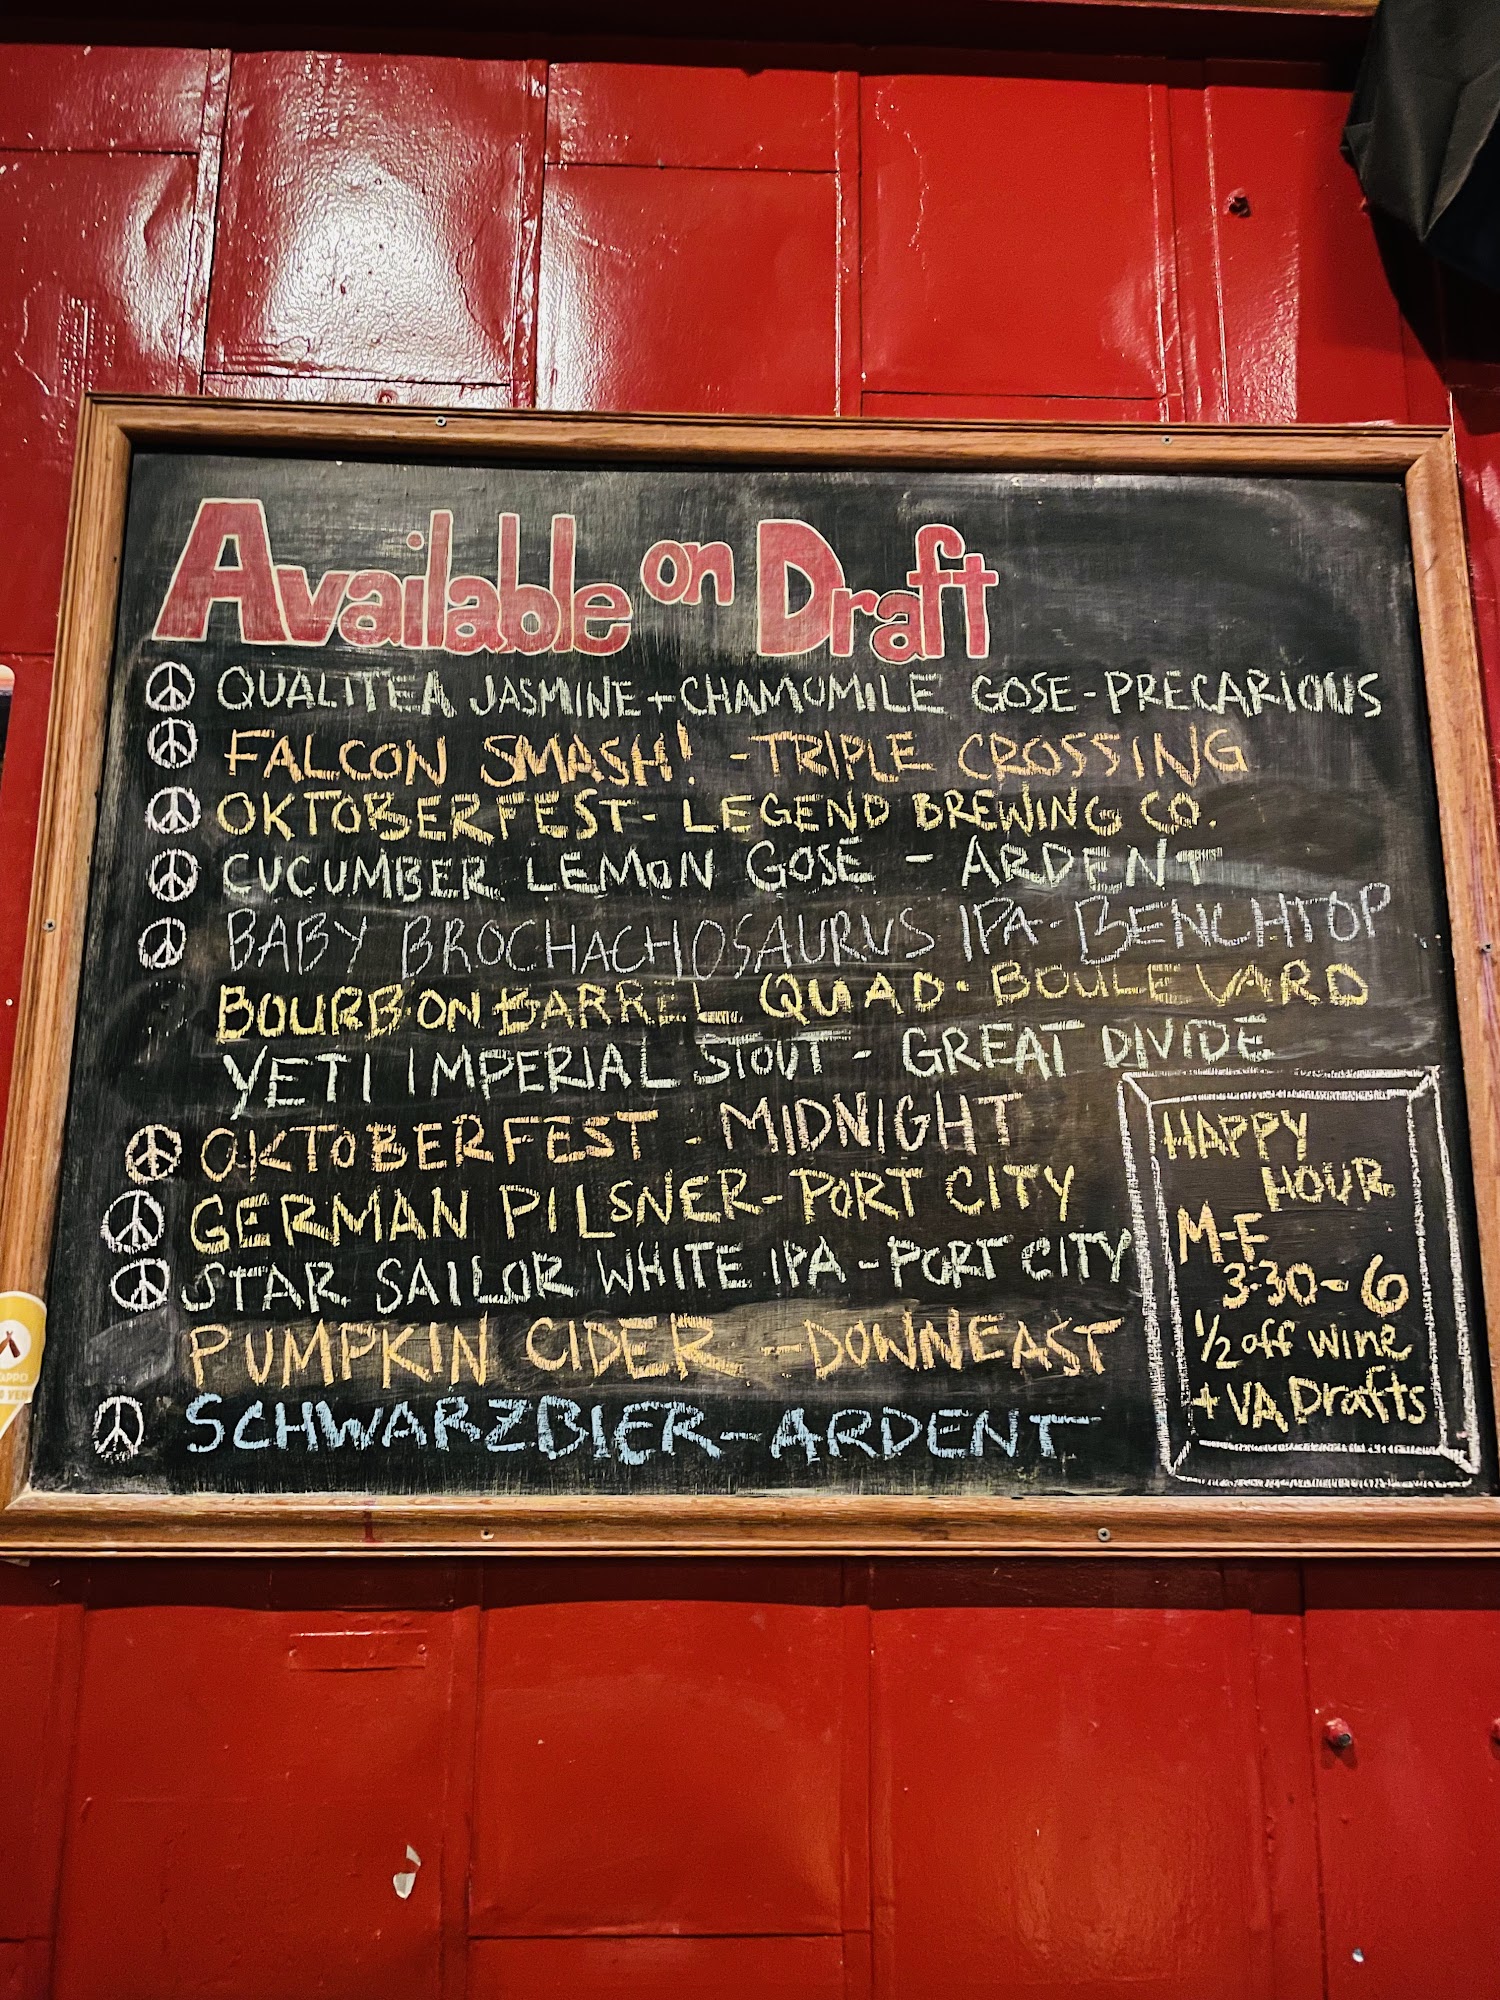 Available on Draft
QUALITEA JASMINE + CHAMOMILE GOSE - PRECARIOUS
FALCON SMASH! - TRIPLE CROSSING
OKTOBERFEST - LEGEND BREWING CO.
CUCUMBER LEMON GOSE - ARDENT
BABY BROCHACHOSAURUS IPA - BENCHTOP
BOURBON BARREL QUAD - BOULEVARD
YETI IMPERIAL STOUT - GREAT DIVIDE
OKTOBERFEST - MIDNIGHT
GERMAN PILSNER - PORT CITY
STAR SAILOR WHITE IPA - PORT CITY
PUMPKIN CIDER - DOWNEAST
SCHWARZBIER - ARDENT
HAPPY
HOUR
M-F
3:30-6
1/2 off wine
+ VA Drafts